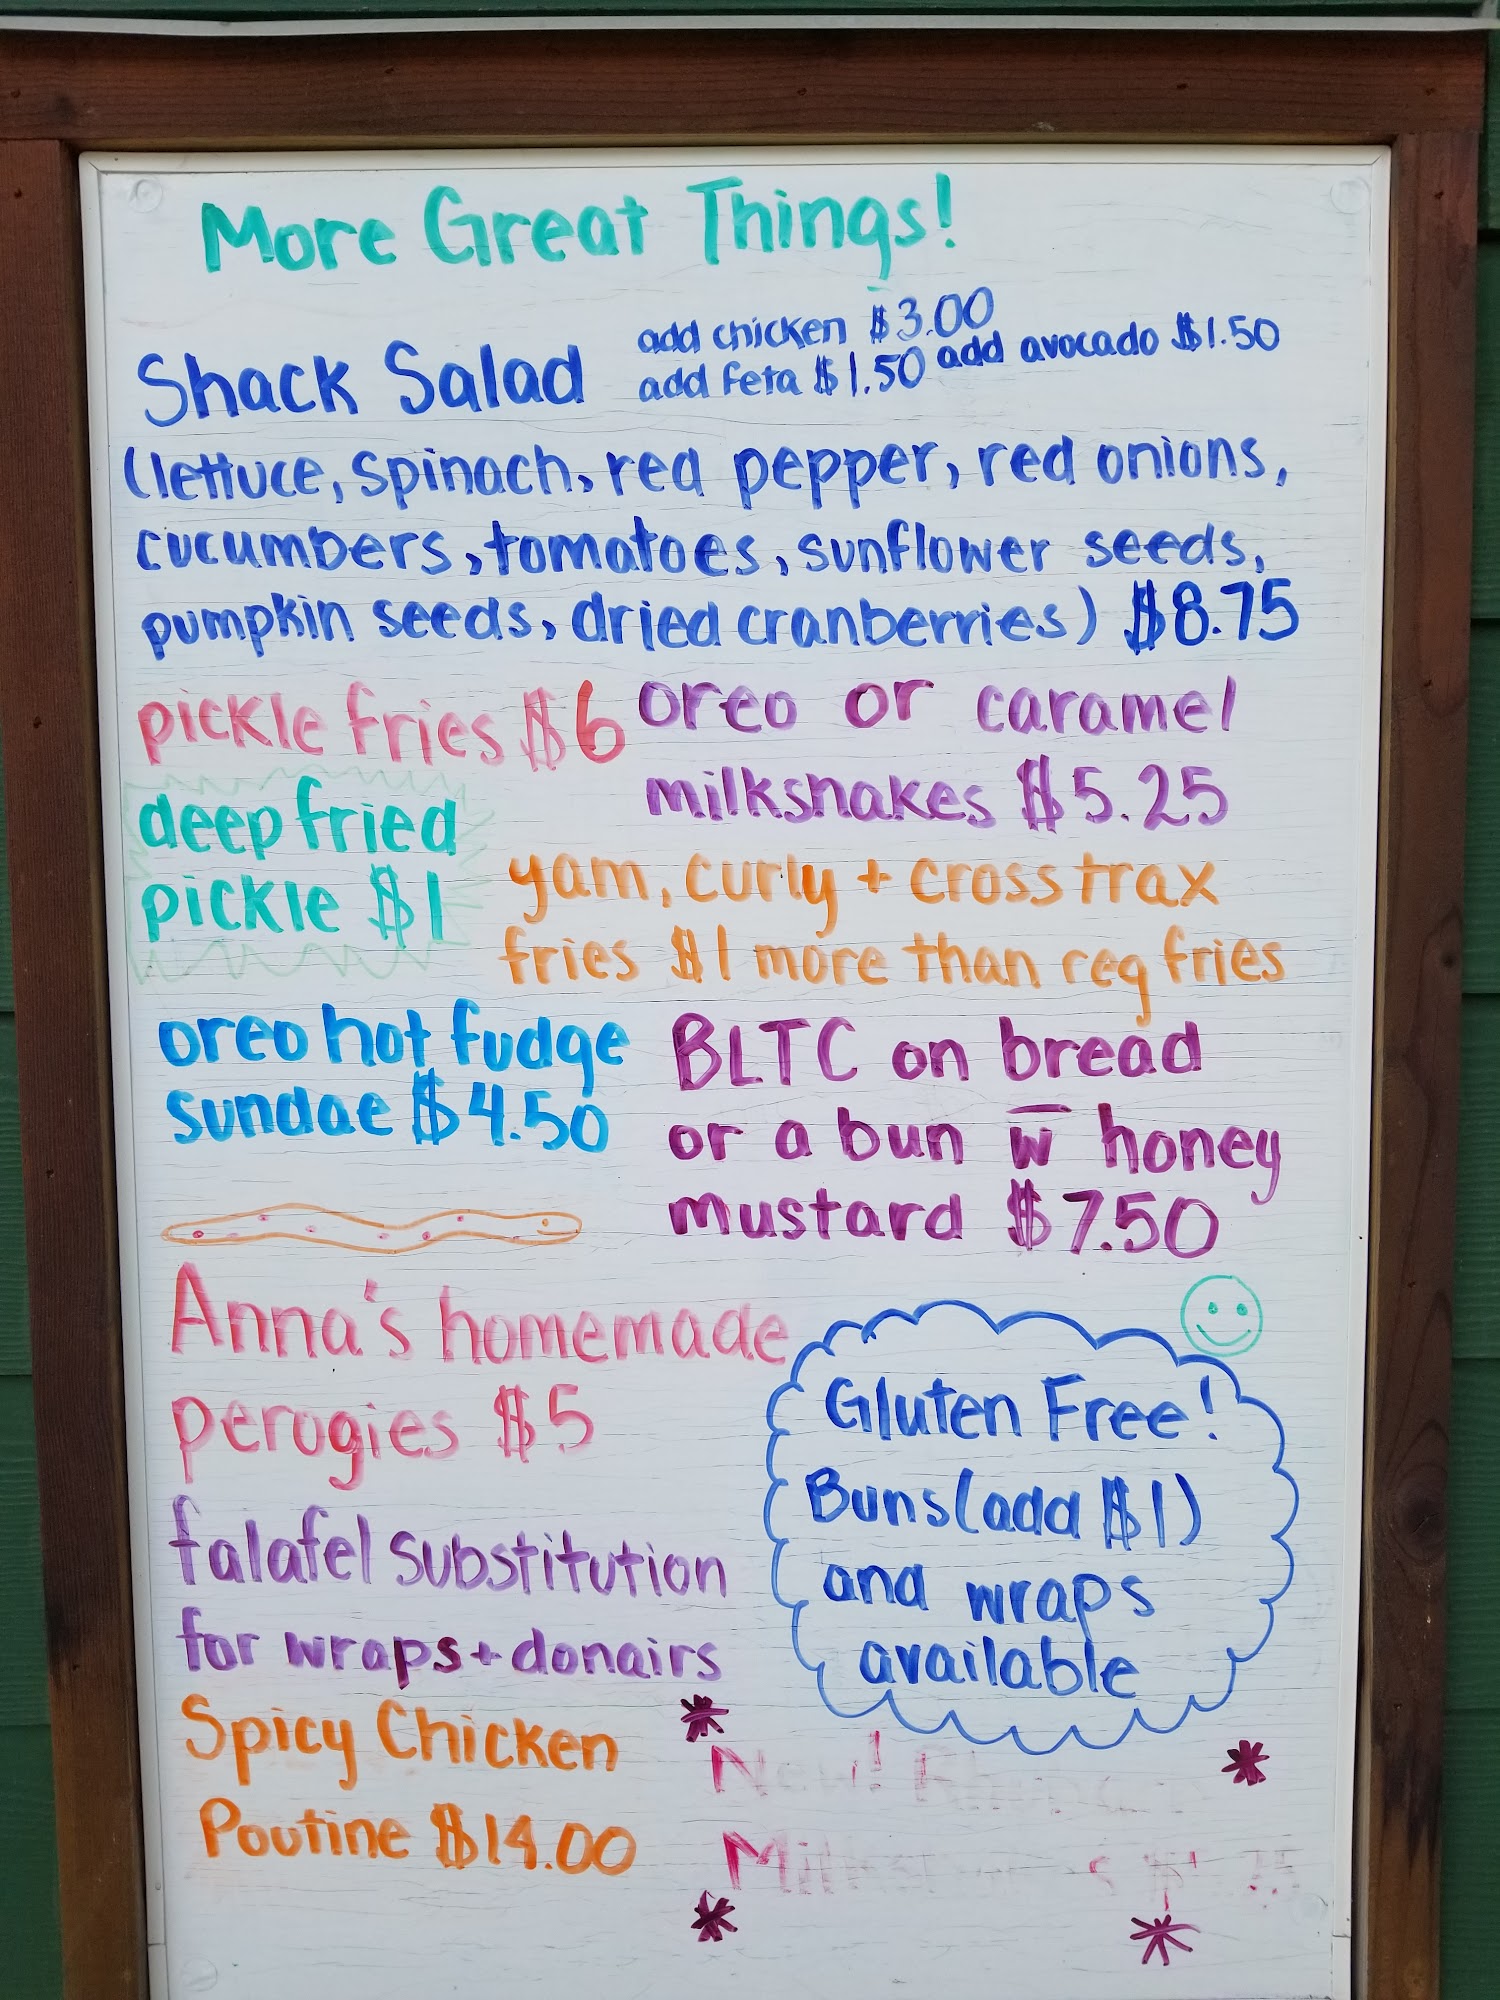 More Great Things!
Shack Salad
add chicken $3.00
add feta $1.50 add avocado $1.50
(lettuce, spinach, red pepper, red onions,
cucumbers, tomatoes, sunflower seeds,
pumpkin seeds, dried cranberries) $8.75
pickle fries $6
oreo or caramel
milkshakes $5.25
deep fried
pickle $1
yam, curly + crosstrax
fries $1 more than reg fries
oreo hot fudge
sundae $4.50
BLTC on bread
or a bun w̅ honey
mustard $7.50
Anna's homemade
perogies $5
Gluten Free!
Buns (add $1)
and wraps
available
falafel substitution
for wraps + donairs
Spicy Chicken
Poutine $14.00
New!